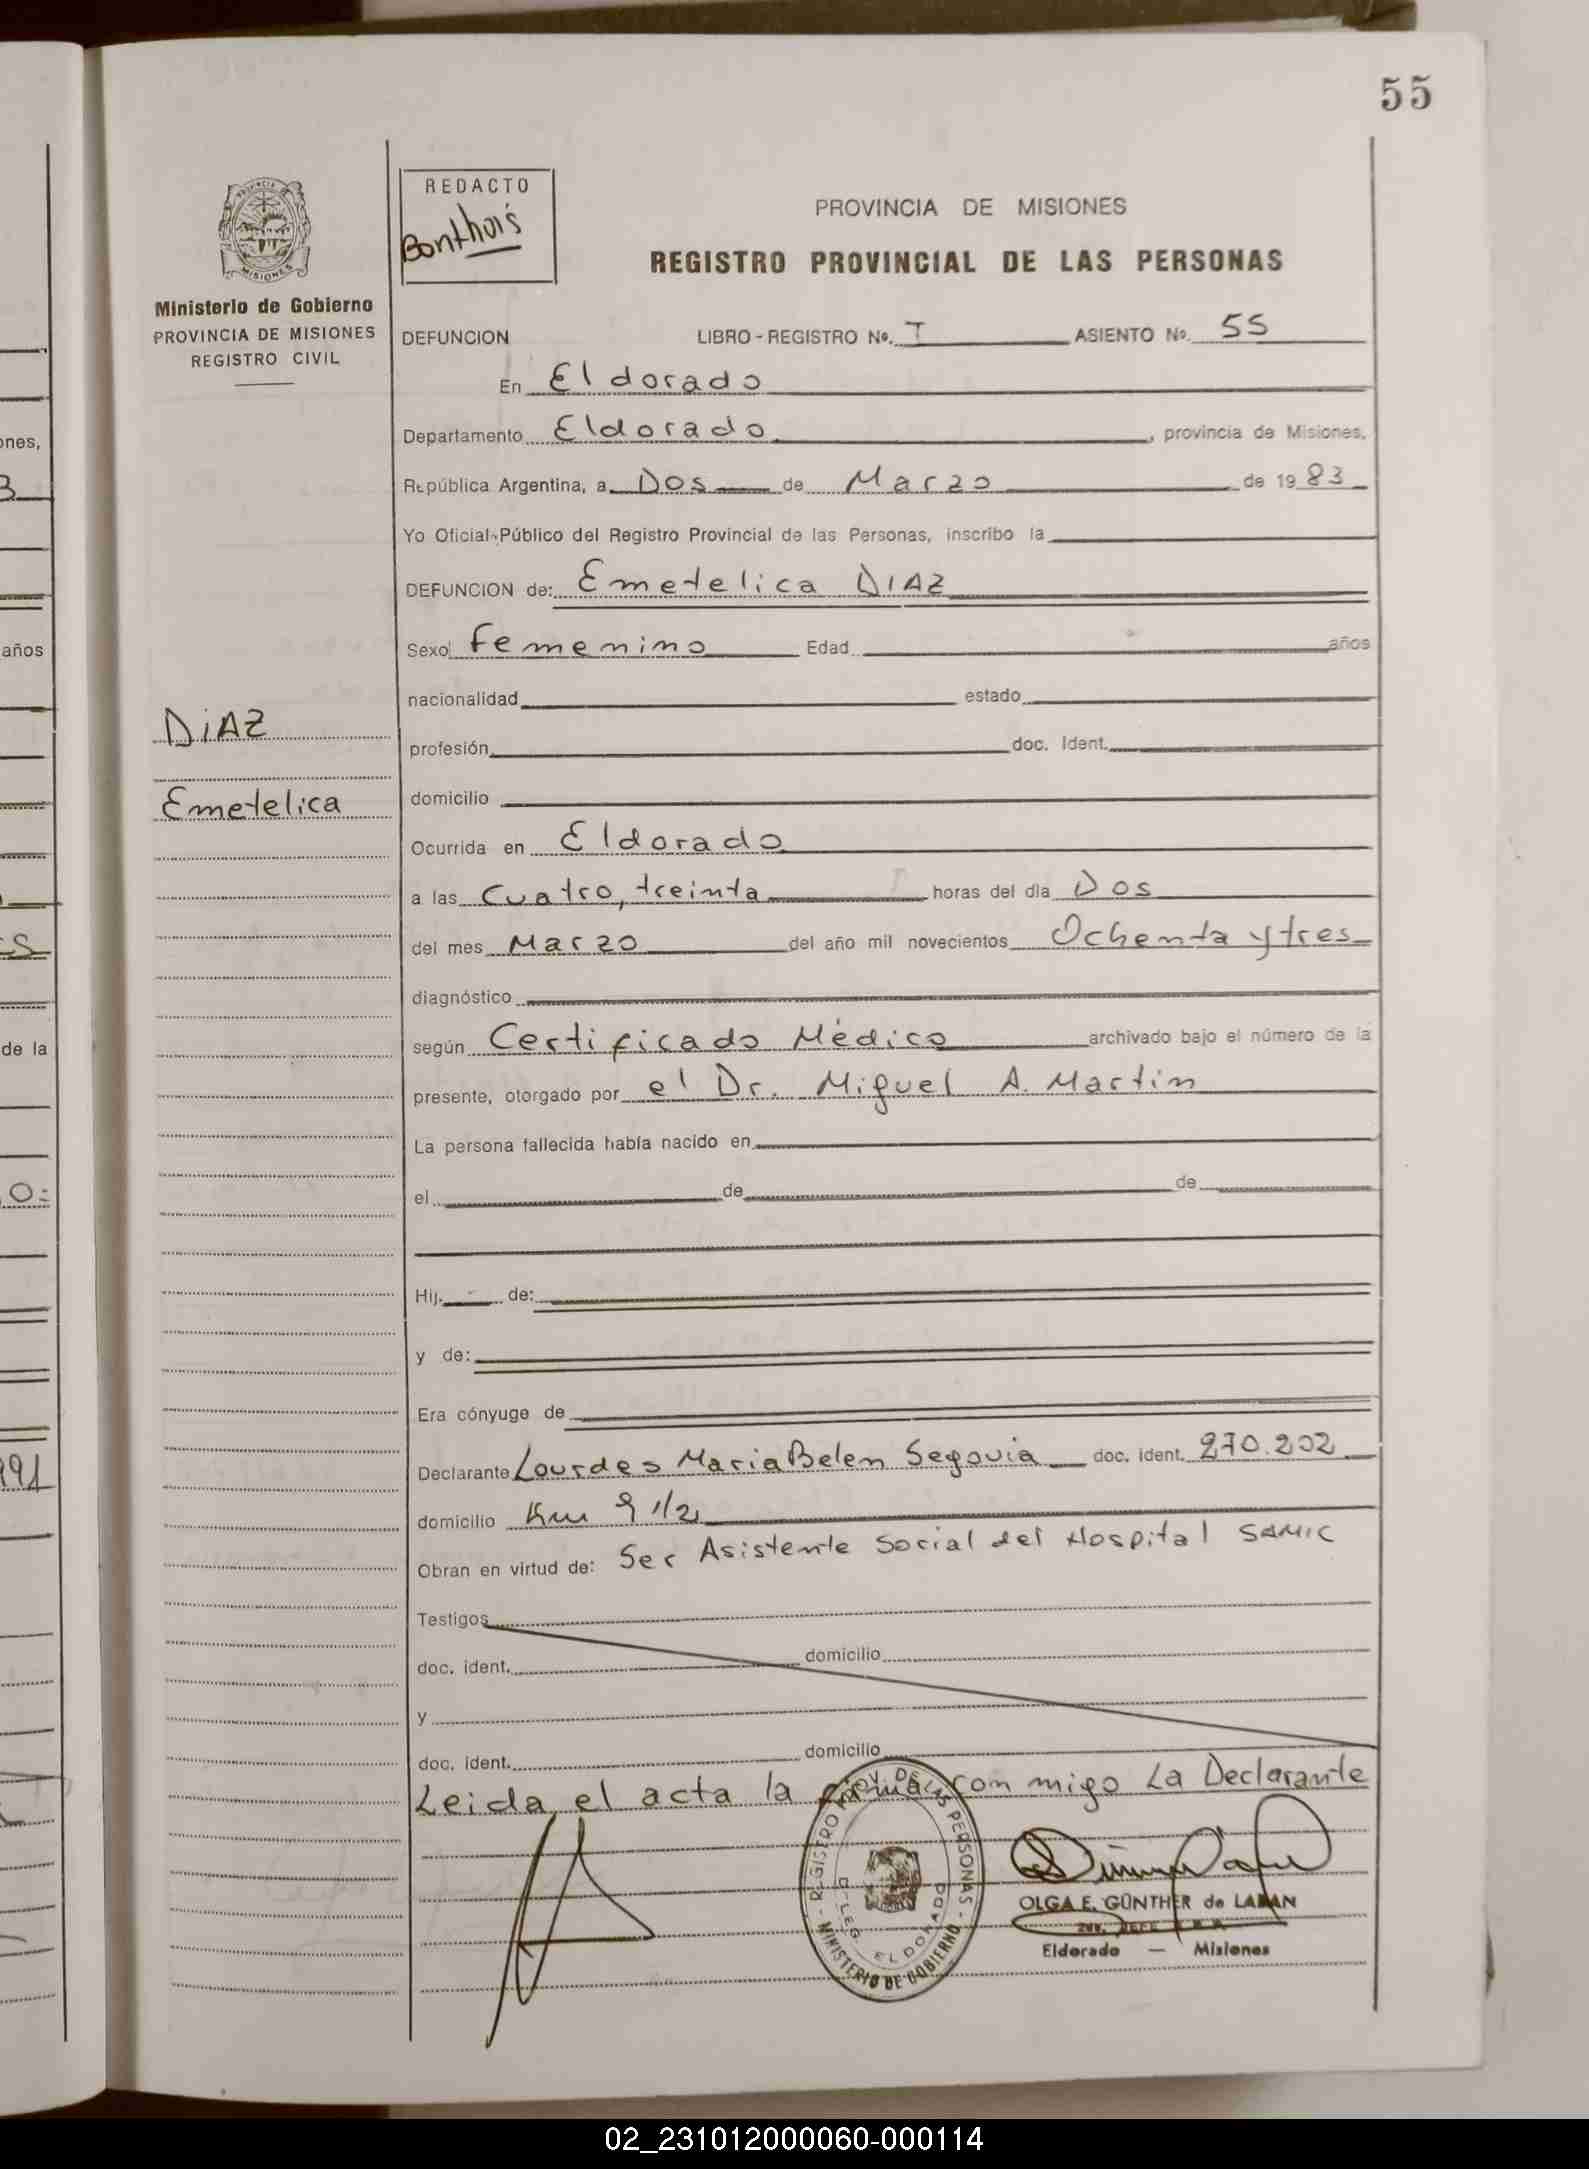 55
REDACTO
Bonthuis
PROVINCIA DE MISIONES
REGISTRO PROVINCIAL DE LAS PERSONAS
PROVINCIA DE
MISIONES
Ministerio de Gobierno
PROVINCIA DE MISIONES
REGISTRO CIVIL
DEFUNCION LIBRO - REGISTRO Nº. I ASIENTO Nº. 55
En Eldorado
Departamento Eldorado, provincia de Misiones,
República Argentina, a Dos de Marzo de 1983
Yo Oficial Público del Registro Provincial de las Personas, inscribo la
DEFUNCION de: Emetelica DIAZ
Sexo Femenino Edad años
nacionalidad estado
DIAZ
profesión doc. Ident.
Emetelica
domicilio
Ocurrida en Eldorado
a las Cuatro, treinta horas del día Dos
del mes Marzo del año mil novecientos Ochenta y tres
diagnóstico
según Certificado Médico archivado bajo el número de la
presente, otorgado por el Dr. Miguel A. Martin
La persona fallecida había nacido en
el de de
Hij. de:
y de:
Era cónyuge de
Declarante Lourdes Maria Belen Segovia doc. ident. 270.202
domicilio Km 9 1/2
Obran en virtud de: Ser Asistente Social del Hospital SAMIC
Testigos
doc. ident. domicilio
y
doc. ident. domicilio
Leida el acta la firma con migo La Declarante
REGISTRO PROV. DE LAS PERSONAS
DELEG. ELDORADO
MINISTERIO DE GOBIERNO
OLGA E. GÜNTHER de LABAN
Eldorado — Misiones
ones,
3
años
de la
O=
991
02_231012000060-000114